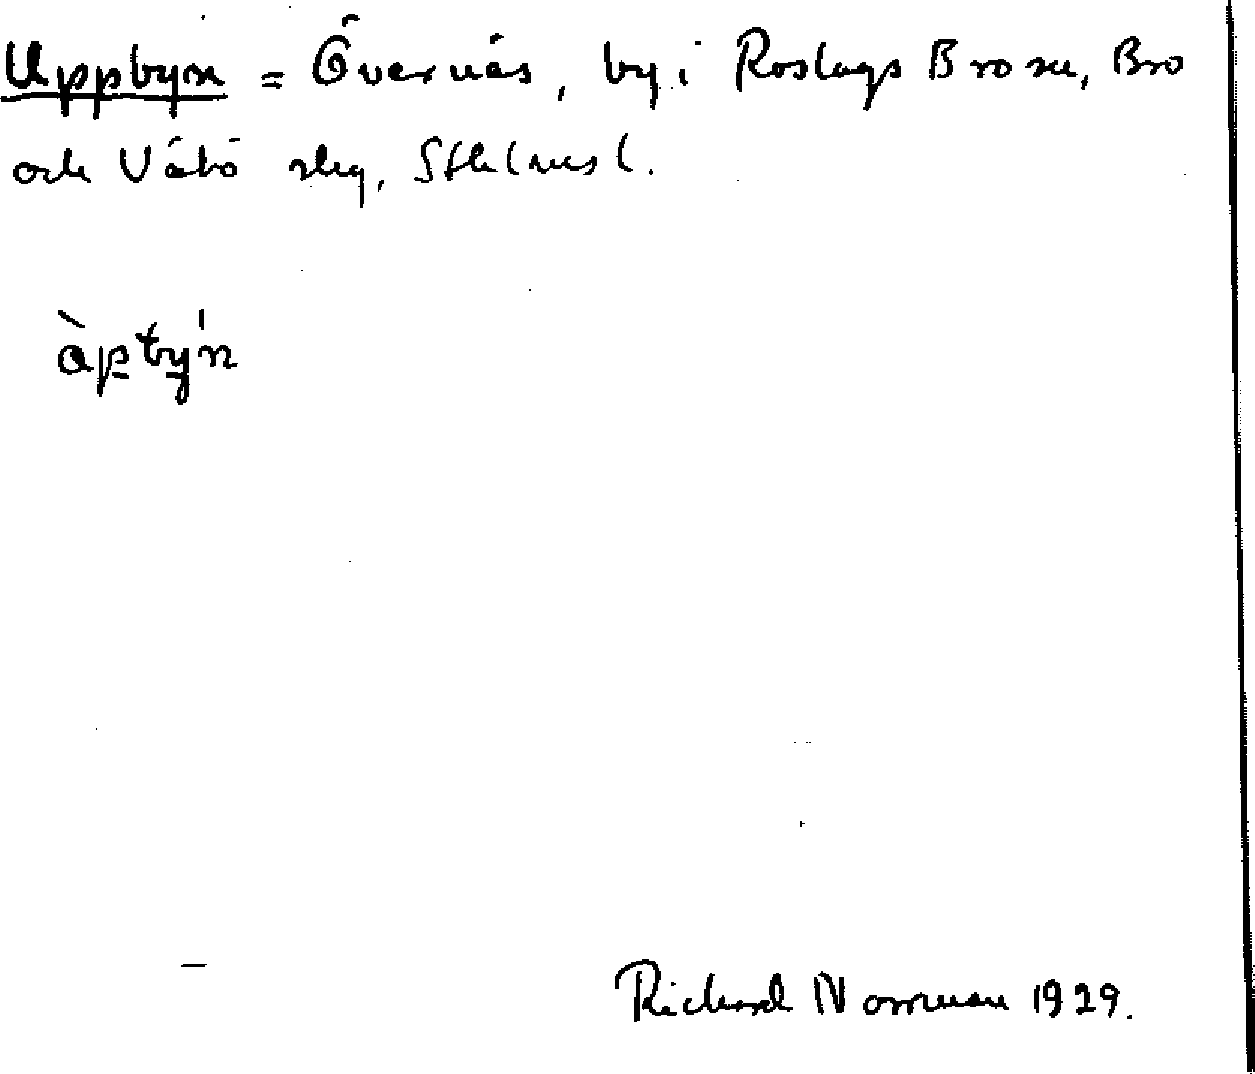 Uppbyn = Övernäs, by i Roslags Bro sn, Bro
och Vätö slg, Sthlms l.
àpbýn
Richard Norrman 1929.